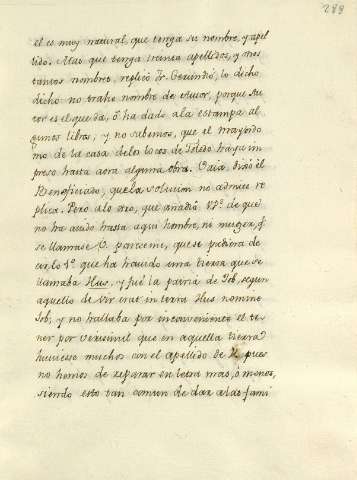 289
èl es muy natural, que tenga su nombre, y apel
lido. Mas que tenga treinta apellidos, y tres
cientos nombres, replicò Dn. Gerundio, lo dicho
dicho no trahe nombre de Autor, porque Au
tor es el que dà, ò ha dado à la estampa al
gunos libros, y no sabemos, que el mayordo
mo de la casa de los locos de Toledo haya im
preso hasta aora alguna obra. Vaia, dixo el
Beneficiado, que la solucion no admite re
plica. Pero à lo otro, que añadiò Vd. de que
no ha avido hasta aqui hombre, ni muger, q
se llamase parceme, que se pudiera de
cir, lo 1o. que ha havido una tierra que se
llamaba Hus, y fuè la patria de Job, segun
aquello de Vir erat in terra Hus nomine
Job; y no hallaba yo inconveniente el te
ner por verisimil que en aquella tierra
huviesse muchos con el apellido de pues
no hemos de reparar en letra mas, ò menos,
siendo esto tan comun de dar a las fami